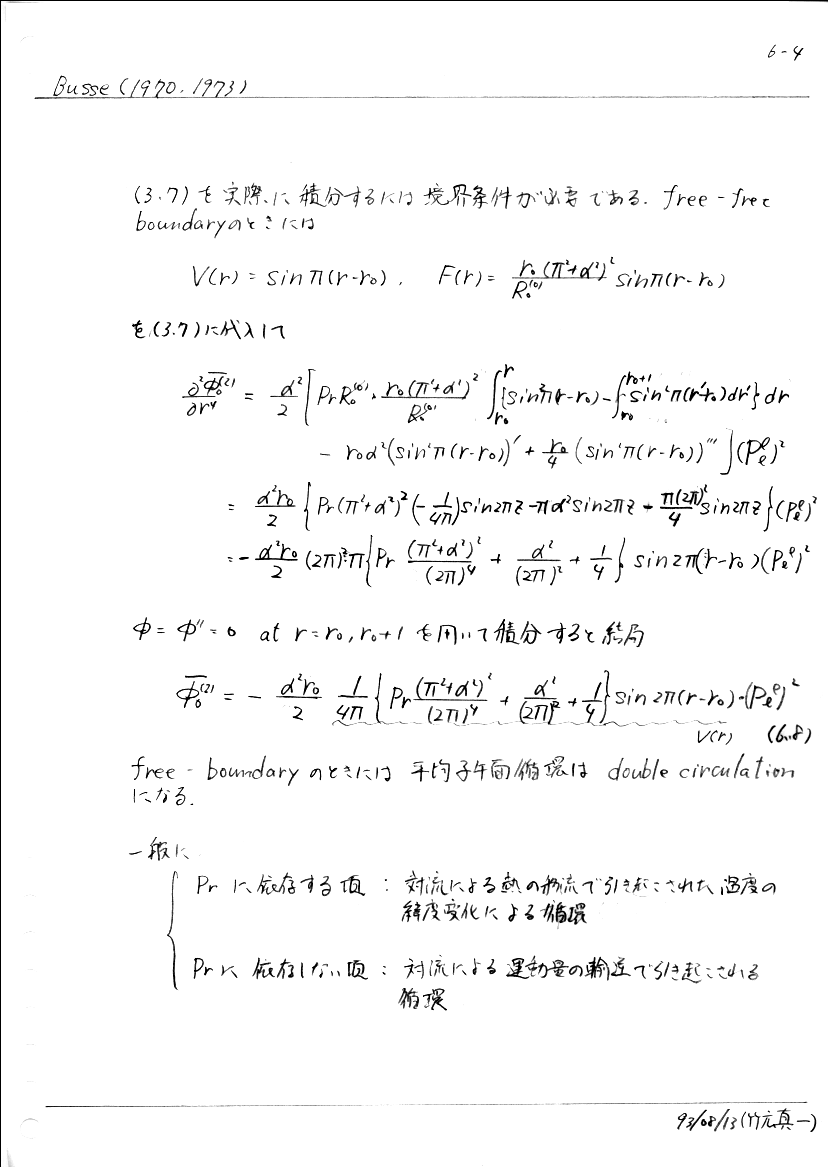 6-4
Busse (1970, 1973)
(3.7) を 実際に 積分するには 境界条件が必要である. free-free
boundaryのときには
V(r) = sin π(r-r₀), F(r) = r₀(π²+α²)²/R₀⁽⁰⁾ sin π(r-r₀)
を(3.7)に代入して
∂⁴Φ̄₀⁽²⁾/∂r⁴ = α²/2 [ Pr R₀⁽⁰⁾ · r₀(π²+α²)²/R₀⁽⁰⁾ ∫_{r₀}^{r} {sin²π(r-r₀) - ∫_{r₀}^{r₀+1} sin²π(r'-r₀)dr'} dr
- r₀α²(sin²π(r-r₀))' + r₀/4 (sin²π(r-r₀))''' ] (Pₗᵉ)²
= α²r₀/2 { Pr(π²+α²)² (-1/4π) sin2πz - πα² sin2πz + π(2π)²/4 sin2πz } (Pₗᵉ)²
= - α²r₀/2 (2π)²·π { Pr (π²+α²)²/(2π)⁴ + α²/(2π)² + 1/4 } sin2π(r-r₀)(Pₗᵉ)²
Φ = Φ'' = 0 at r = r₀, r₀+1 を用いて積分すると結局
Φ̄₀⁽²⁾ = - α²r₀/2 1/4π { Pr (π²+α²)²/(2π)⁴ + α²/(2π)² + 1/4 } sin2π(r-r₀)·(Pₗᵉ)²
V(r) (6.8)
free-boundary のときには 平均子午面循環は double circulation
になる.
一般に
Pr に依存する項 : 対流による熱の輸流で引き起こされた、温度の
緯度変化による循環
Prに 依存しない項 : 対流による運動量の輸送で引き起こされる
循環
93/08/13(竹広真一)